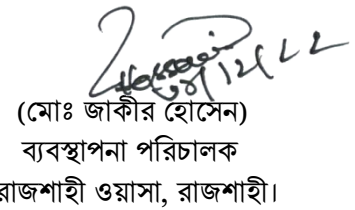 Hossain
(মোঃ জাকীর হোসেন)
ব্যবস্থাপনা পরিচালক
রাজশাহী ওয়াসা, রাজশাহী।